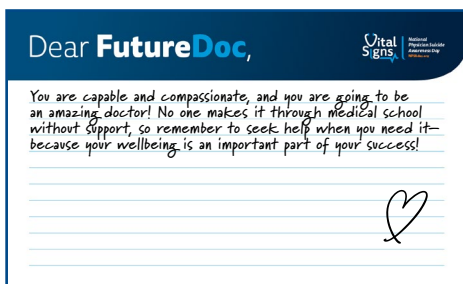 Dear FutureDoc,
Vital Signs
National
Physician Suicide
Awareness Day
You are capable and compassionate, and you are going to be
an amazing doctor! No one makes it through medical school
without support, so remember to seek help when you need it—
because your wellbeing is an important part of your success!